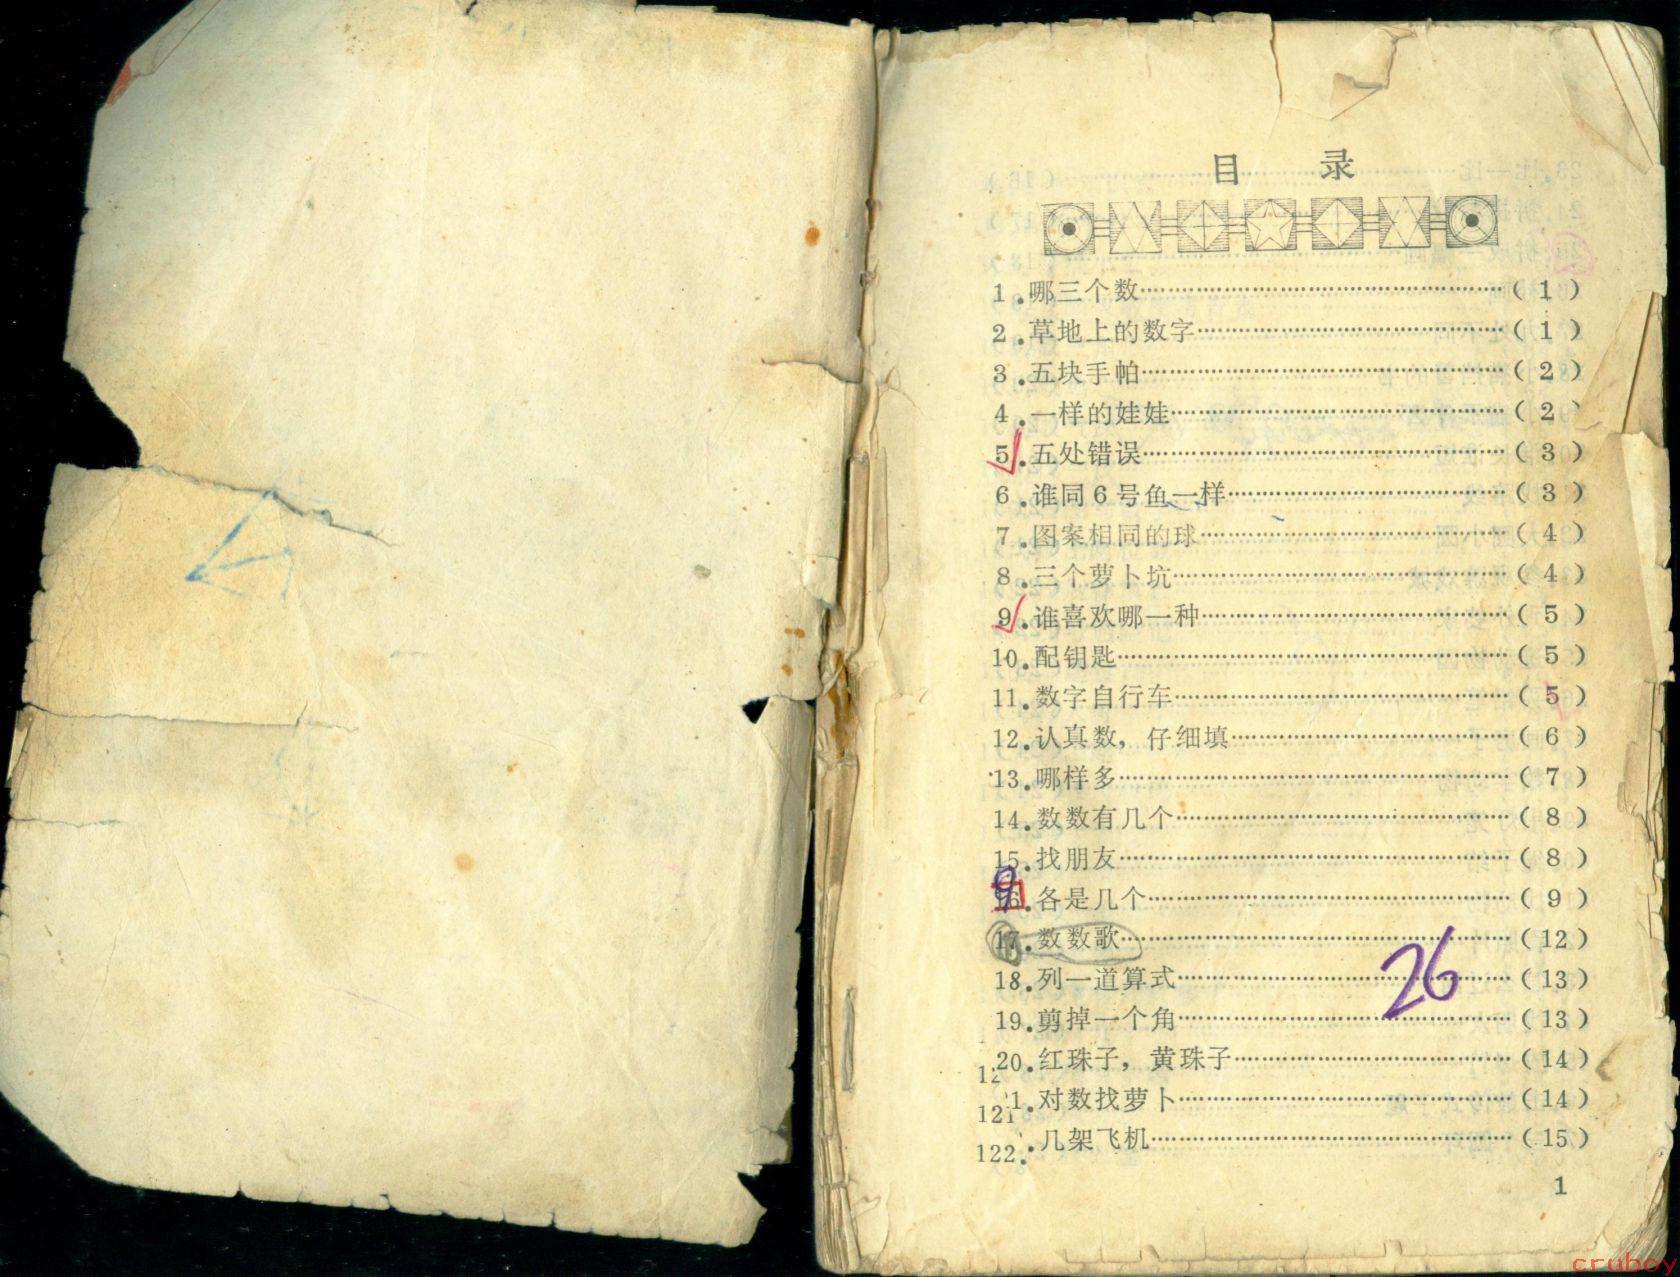 目 录
1.哪三个数……(1)
2.草地上的数字……(1)
3.五块手帕……(2)
4.一样的娃娃……(2)
5.五处错误……(3)
6.谁同6号鱼一样……(3)
7.图案相同的球……(4)
8.三个萝卜坑……(4)
9.谁喜欢哪一种……(5)
10.配钥匙……(5)
11.数字自行车……(5)
12.认真数，仔细填……(6)
13.哪样多……(7)
14.数数有几个……(8)
15.找朋友……(8)
9
16.各是几个……(9)
17.数数歌……(12)
26
18.列一道算式……(13)
19.剪掉一个角……(13)
20.红珠子，黄珠子……(14)
12
121
1.对数找萝卜……(14)
122.
.几架飞机……(15)
1
cruboy